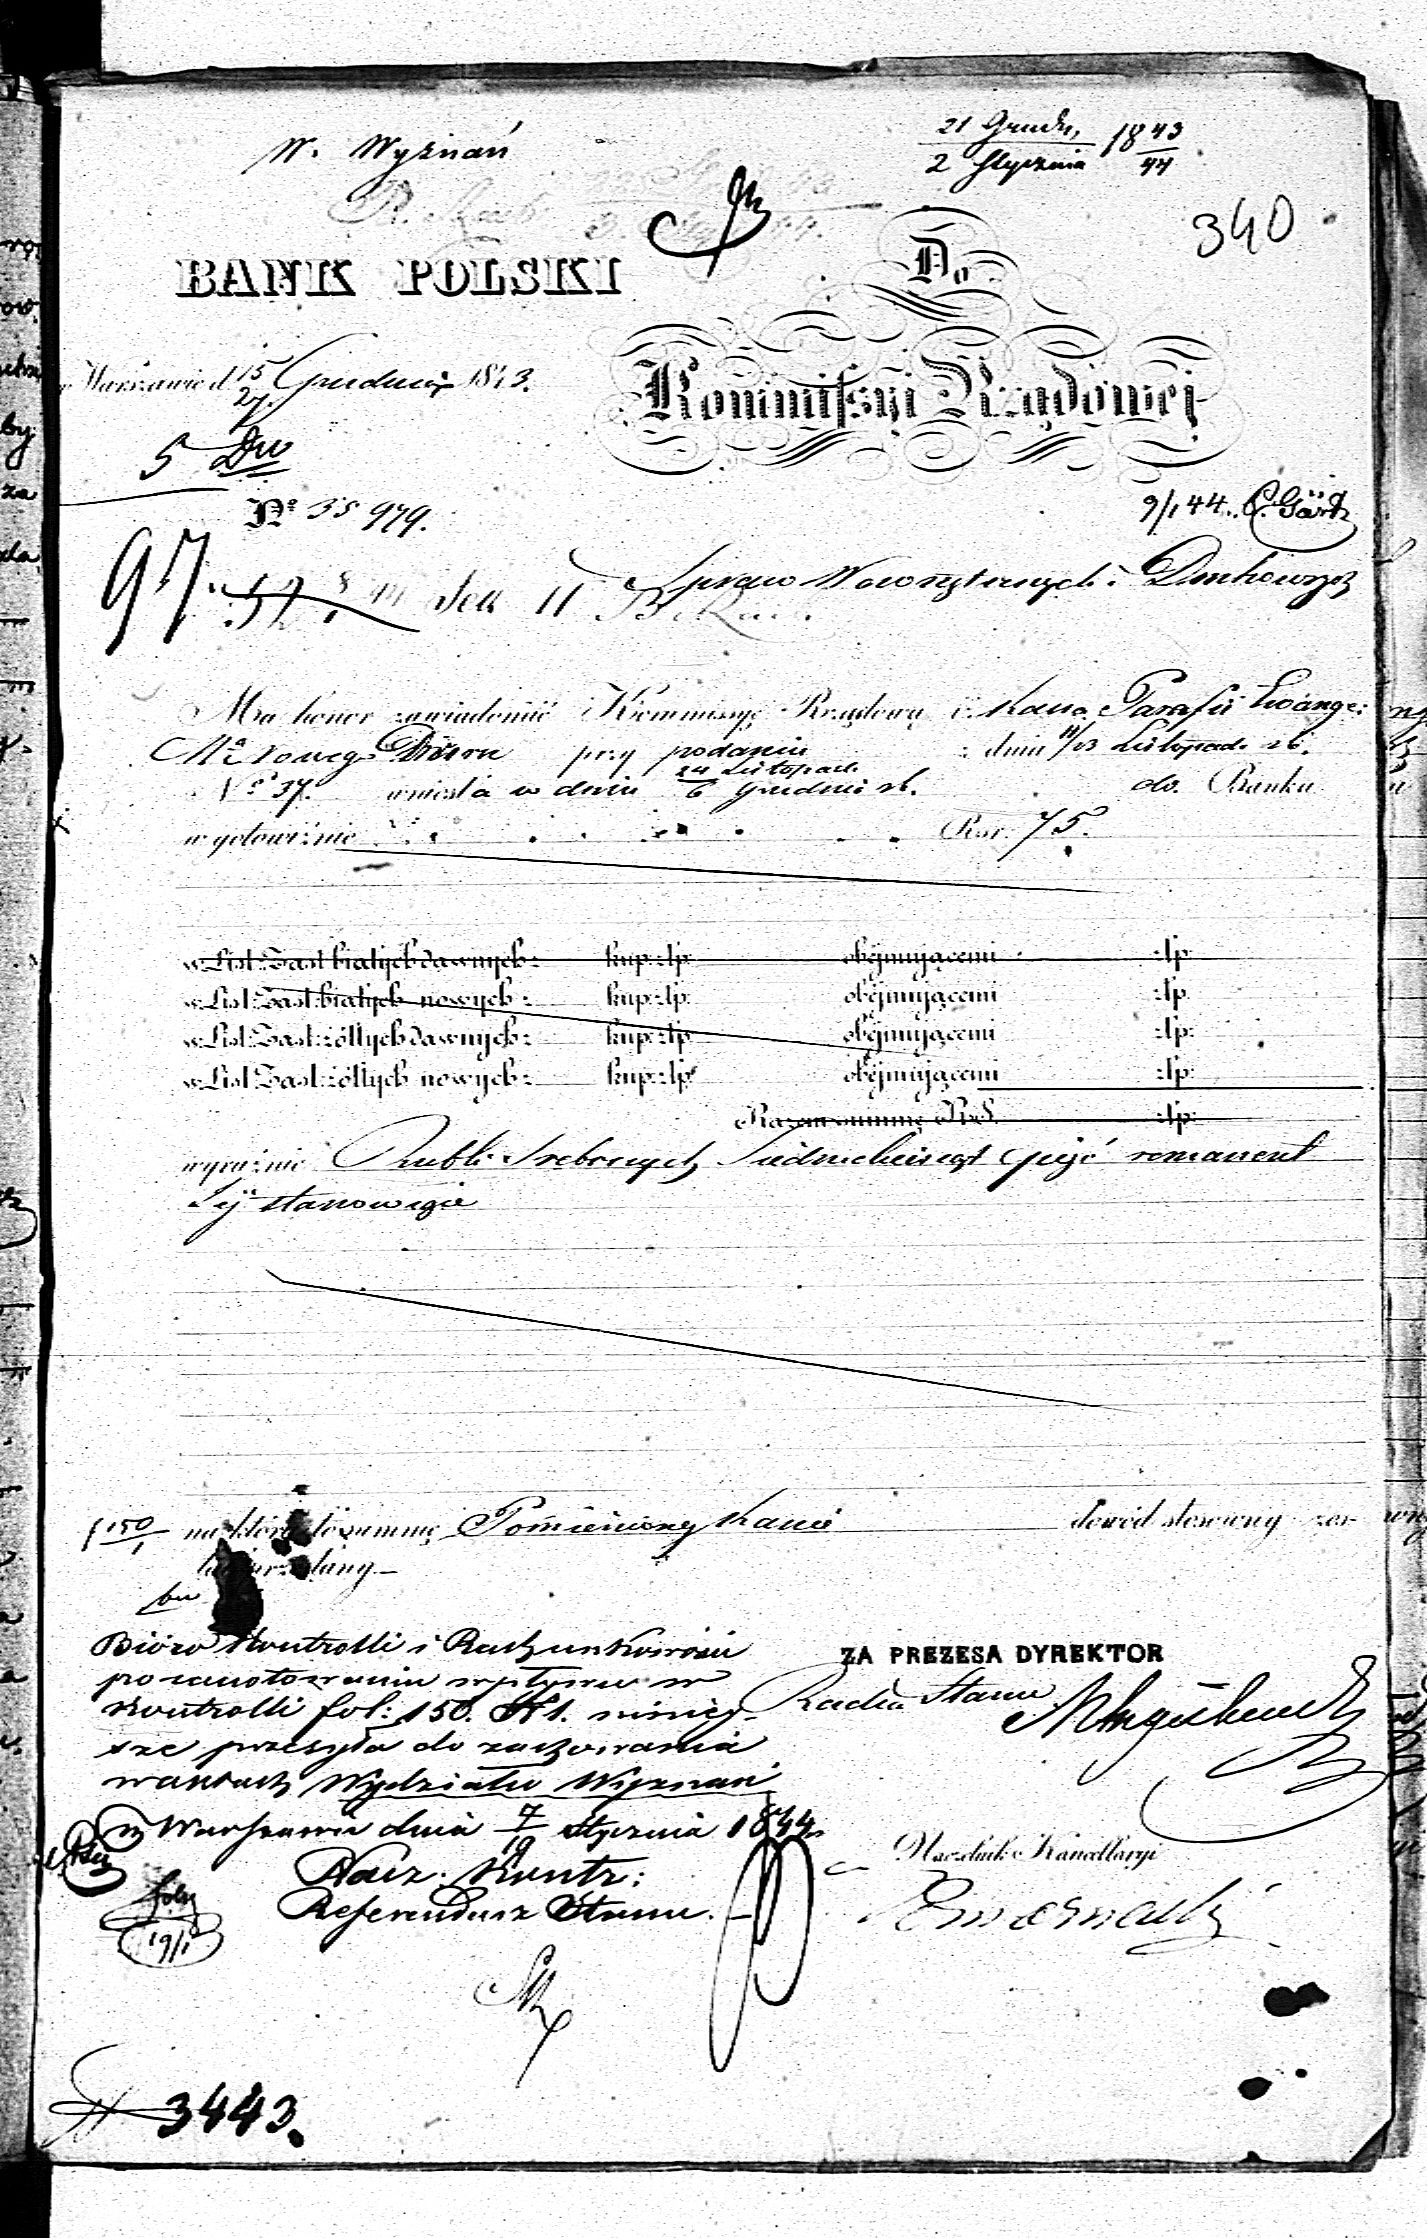 W. Wyznań
21 Grudn, 1843
2 Stycznia 44
340
BANK POLSKI
Do
Kommissyi Rządowej
w Warszawie d 15 Grudnia 1843.
27
5 Dw
9/1 44. C. Gärtz
Nº 35979.
97
Spraw Wewnętrznych i Duchownych
Ma honor zawiadomić Kommissyę Rządową iż Kassa Parafii Ewange:
Nowego Dworu przy podaniu z dnia 11/23 Listopada rb.
Nº 37. wniosła w dniu 24 Listopada
6 Grudnia rb. do Banku
w gotowiźnie Rsr. 75.
w List: Zast: białych dawnych: kup: złp: obejmującemi złp:
w List: Zast: białych nowych: kup: złp: obejmującemi złp:
w List: Zast: żółtych dawnych: kup: złp: obejmującemi złp:
w List: Zast: żółtych nowych: kup: złp: obejmującemi złp:
Razem summę RS. złp:
wyraźnie Rubli Srebrnych Siedmdziesiąt pięć remanent
Jéj stanowiące
f 150/1 na którą to summę Pomienionej Kassie dowód stosowny zos-
tał przesłany
Bióro Kontrolli i Rachunkowości
po zanotowaniu wpływu w
Kontrolli fol: 150. Nº 1. niniej-
sze przesyła do zachowania
w aktach Wydziału Wyznań
w Warszawie dnia 7/19 Stycznia 1844
Nacz. Kontr:
Referendarz Stanu.
ZA PREZESA DYREKTOR
Radca Stanu
Naczelnik Kancellaryi
19/1
3443.